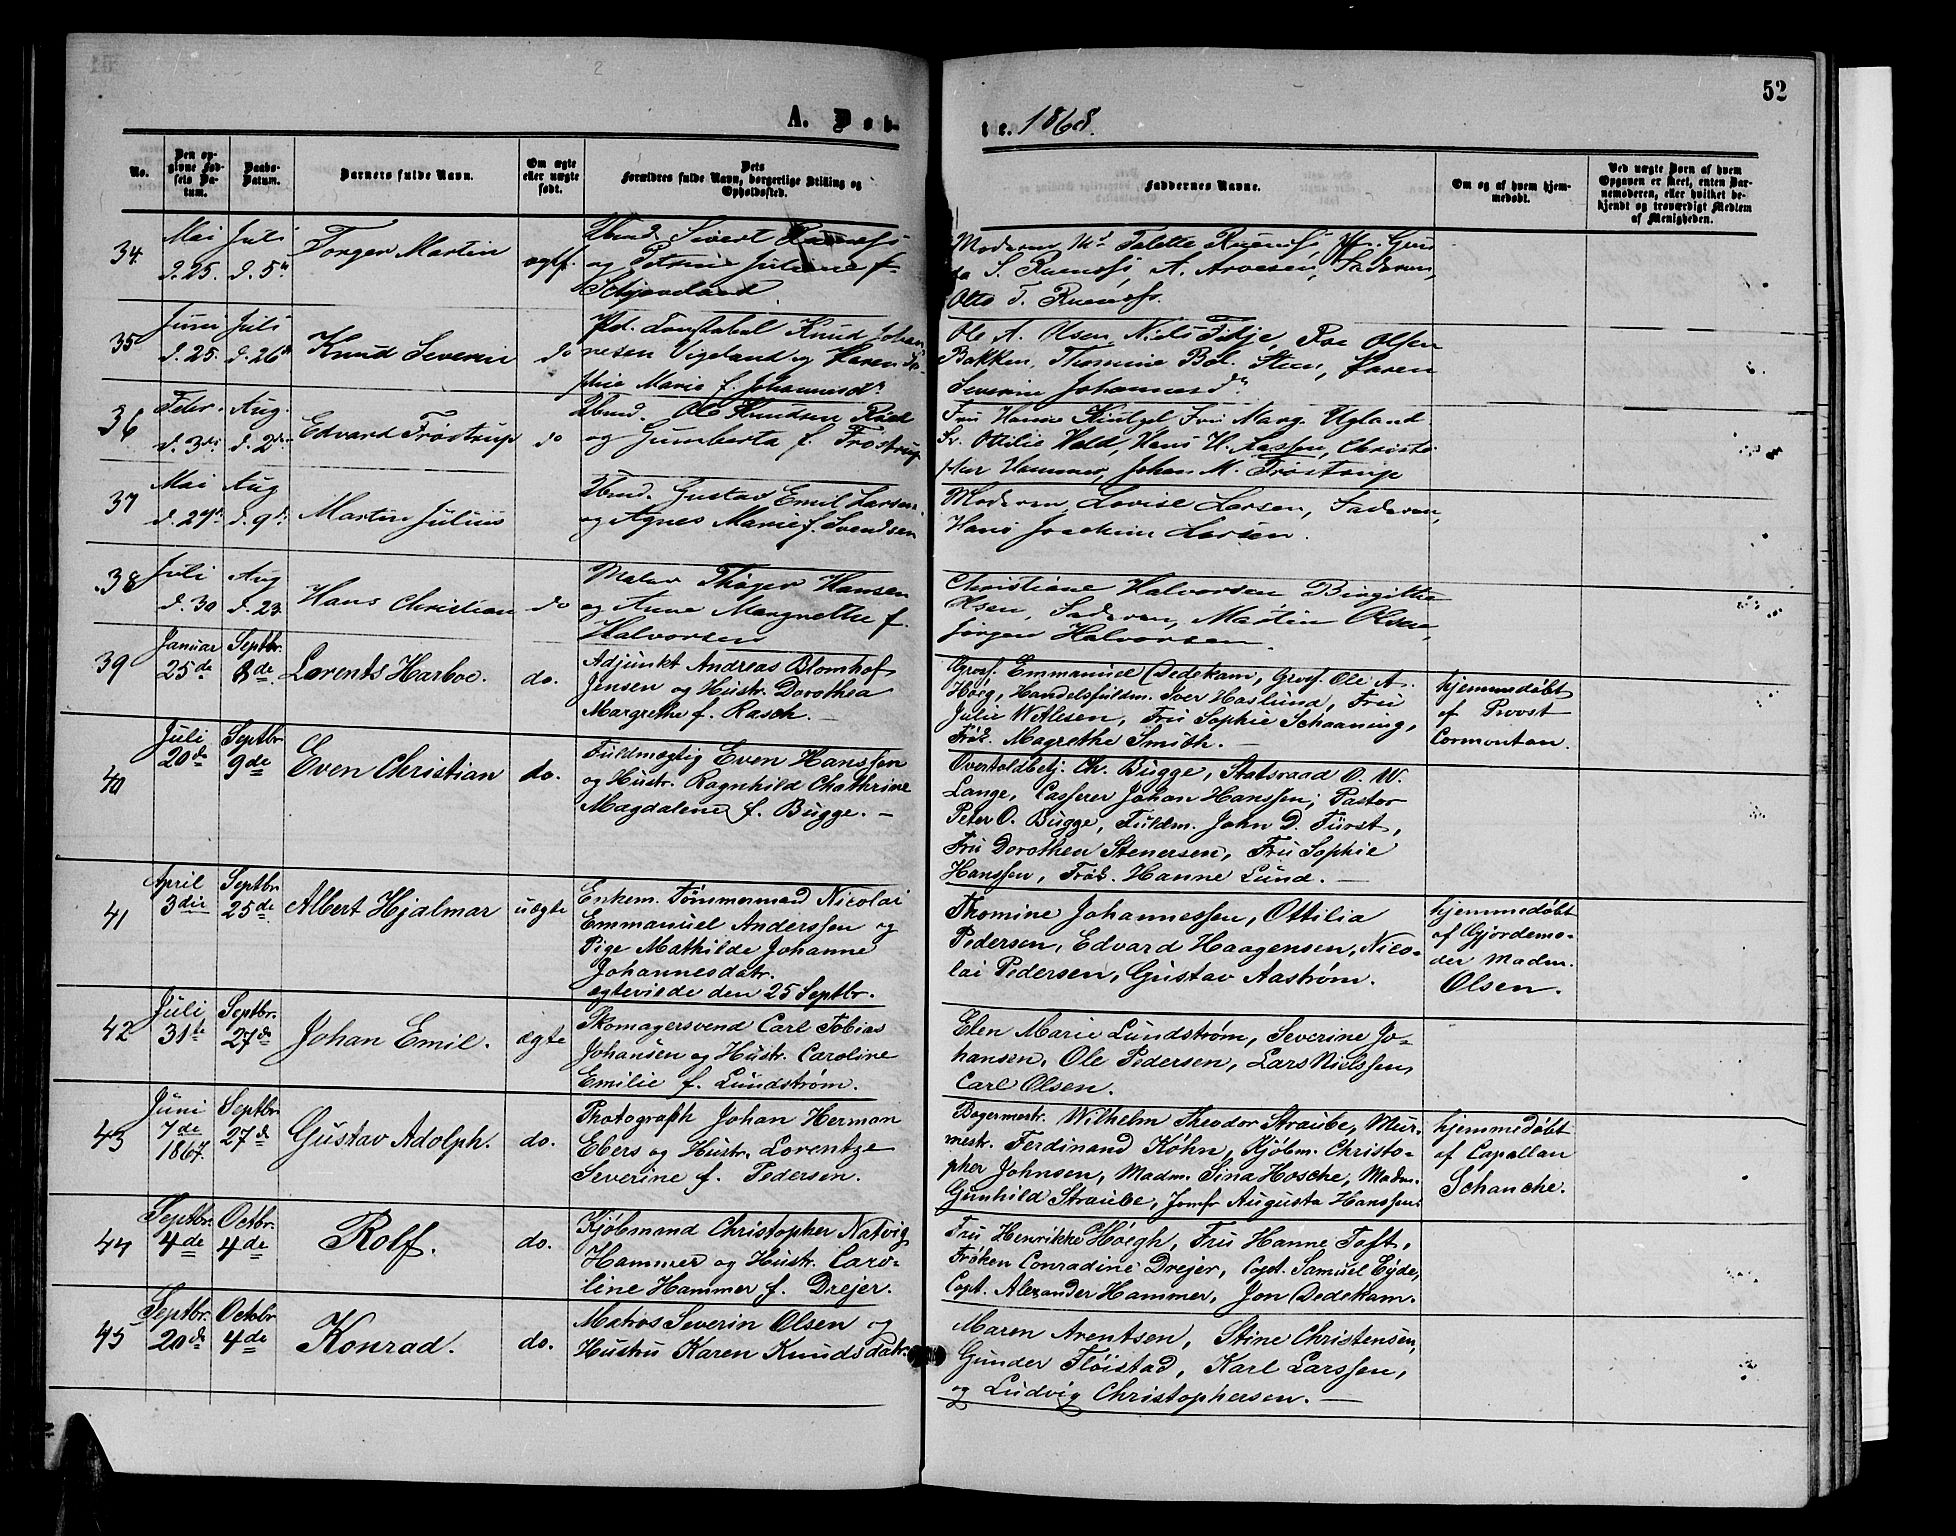 52
A. Døb-
te. 1868.
No.
Den op-
givne Fød-
sels Da-
tum.
Daabs-
Datum.
Barnets fulde Navn.
Om ægte
eller uægte
født.
Dets
Forældres fulde Navn, borgerlige Stilling og
Opholdssted.
Faddernes Navne.
Om og af hvem hjem-
medøbt.
Ved uægte Børn af hvem
Opgaven er skeet, enten Bar-
nemoderen, eller hvilket be-
kjendt og troværdigt Medlem
af Menigheden.
34
Mai
d. 25.
Juli
d. 5
Torger Martin
Sivert
og Petrine Juliane f.
Moderen, Talette
S. A. Arvesen, Faderen,
Otto T.
35
Juni
d. 25.
Juli
d. 26
Knud Severin
do
Knud Johan-
nesen Vigeland og Karen So-
phie Marie f. Johannesd
Ole A. Olsen, Niels Olsen
Bakken, Thomine Stein, Karen
Severin Johannesd
36
Febr.
d. 3
Aug.
d. 2
Edvard Frøstrup
do
Ole Knudsen
og Gumberta f. Frøstrup
Fru Hanne Fru Marg. Ugland
Fr. Ottilie Hans H. Christo-
pher Hammer, Johan M. Frøstrup
37
Mai
d. 27
Aug
d. 9
Martin Julius
Gustav Emil Larsen
og Agnes Marie f. Svendsen
Moderen, Lovise Larsen, Faderen,
Hans Joachim Larsen.
38
Juli
d. 30
Aug
d. 23.
Hans Christian
do
Maler Thøger Hansen
og Anne Margrethe f.
Halvorsen
Christiane Halvorsen Birgitte
Olsen, Faderen, Martin Olsen,
Jørgen Halvorsen.
39
Januar
25de
Septbr.
8de
Lorents Harboe.
do.
Adjunkt Andreas Blomhof
Jensen og Hustr. Dorothea
Margrethe f. Rasch. —
Gross. Emmanuel Dedekam, Gross. Ole A.
Høeg, Handelsfuldm. Iver Haslund, Fru
Julie Wetlesen, Fru Sophie Schaaning,
Frøk. Magrethe Smith. —
hjemmedøbt
af Provst
Cormontan.
40
Juli
20de
Septbr
9de
Even Christian
do.
Fuldmægtig Even Hanssen
og Hustr. Ragnhild Chathrine
Magdalene f. Bugge. —
Overtoldbetj. Ch. Bugge, Statsraad O. W.
Lange, Casserer Johan Hanssen, Pastor
Peter O. Bugge, Fuldm. John D. Fürst,
Fru Dorothea Stenersen, Fru Sophie
Hanssen, Frøk. Hanne Lund. —
41
April
3die
Septbr
25de
Albert Hjalmar
uægte
Enkem. Tømmermand Nicolai
Emmanuel Anderssen og
Pige Mathilde Johanne
Johannesdatr.
ægteviede den 25 Septbr.
Thomine Johannessen, Ottilia
Pedersen, Edvard Haagensen, Nico-
lai Pedersen, Gustav Aastrøm.
hjemmedøbt
af Gjordemo-
der Madm.
Olsen.
42
Juli
31te
Septbr.
27de
Johan Emil.
ægte
Skomagersvend Carl Tobias
Johansen og Hustr. Caroline
Emilie f. Lundstrøm.
Elen Marie Lundstrøm, Severine Jo-
hansen, Ole Pedersen, Lars Nielssen,
Carl Olsen.
43
Juni
7de
1867.
Septbr
27de
Gustav Adolph.
do.
Photografh Johan Herman
Ebers og Hustr. Lorentze
Severine f. Pedersen.
Bagermestr. Wilhelm Theodor Straube, Mur-
mestr. Ferdinand Køhn, Kjøbm. Christo-
pher Johnsen, Madm. Sina Hosche, Madm.
Gunhild Straube, Jomfr Augusta Hanssen.
hjemmedøbt
af Capallan
Schanche.
44
Septbr.
4de
Octbr.
4de
Rolf.
do.
Kjøbmand Christopher Natvig
Hammer og Hustr. Caro-
line Hammer f. Drejer.
Fru Henrikke Høegh, Fru Hanne Toft,
Frøken Conradine Drejer, Capt. Samuel Eyde,
Capt. Alexander Hammer, Jon Dedekam.
45
Septbr.
20de
Octobr
4de
Konrad.
do.
Matros Severin Olsen og
Hustru Karen Knudsdatr.
Maren Arentsen, Stine Christensen,
Gunder Fløistad, Karl Larssen,
og Ludvig Christophersen. —